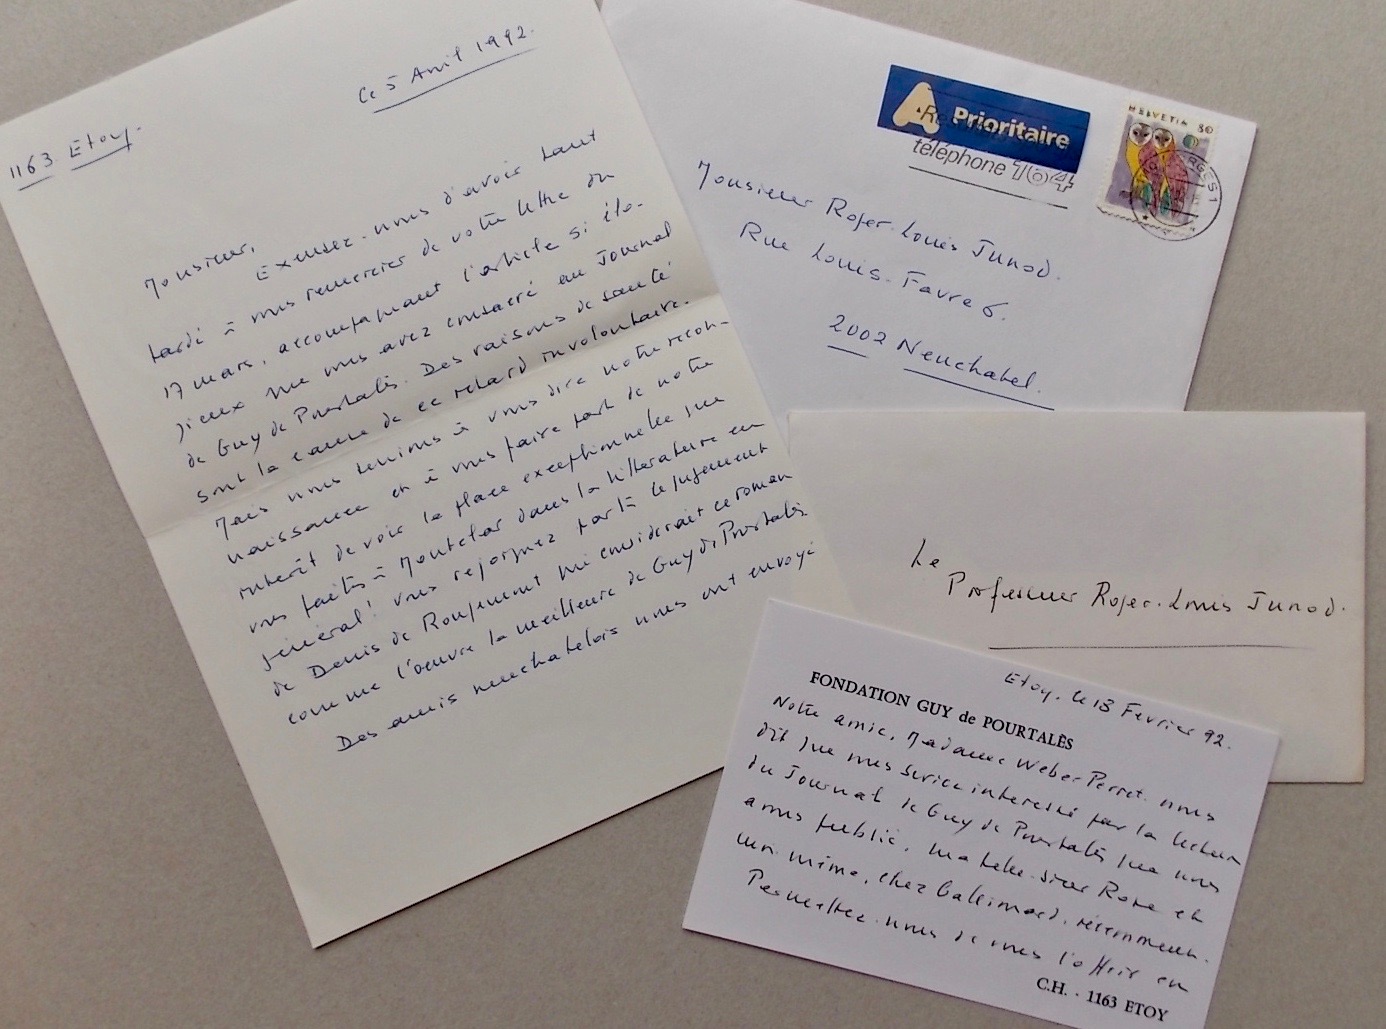 Ce 5 Avril 1992.
1163. Etoy.
Monsieur,
Excusez-nous d'avoir tant
tardé à vous remercier de votre lettre du
17 mars, accompagnant l'article si élo-
gieux que vous avez consacré au Journal
de Guy de Pourtalès. Des raisons de santé
sont la cause de ce retard involontaire.
Mais nous tenions à vous dire notre recon-
naissance et à vous faire part de notre
intérêt de voir la place exceptionnelle que
vous faites à Montclar dans la littérature en
général! vous rejoignez par là le jugement
de Denis de Rougemont qui considérait ce roman
comme l'oeuvre la meilleure de Guy de Pourtalès.
Des amis neuchatelois nous ont envoyé
A Prioritaire
téléphone 164
HELVETIA 80
Monsieur Roger-Louis Junod.
Rue Louis-Favre 6.
2002 Neuchatel.
Le
Professeur Roger-Louis Junod.
Etoy, le 13 Fevrier 92.
FONDATION GUY de POURTALÈS
Notre amie, Madame Weber-Perret nous
dit que vous seriez interessé par la lecture
du Journal de Guy de Pourtalès que nous
avons publié, ma belle-sœur Rose et
moi-même, chez Gallimard, récemment.
Permettez-nous de vous l'offrir en
C.H. - 1163 ETOY